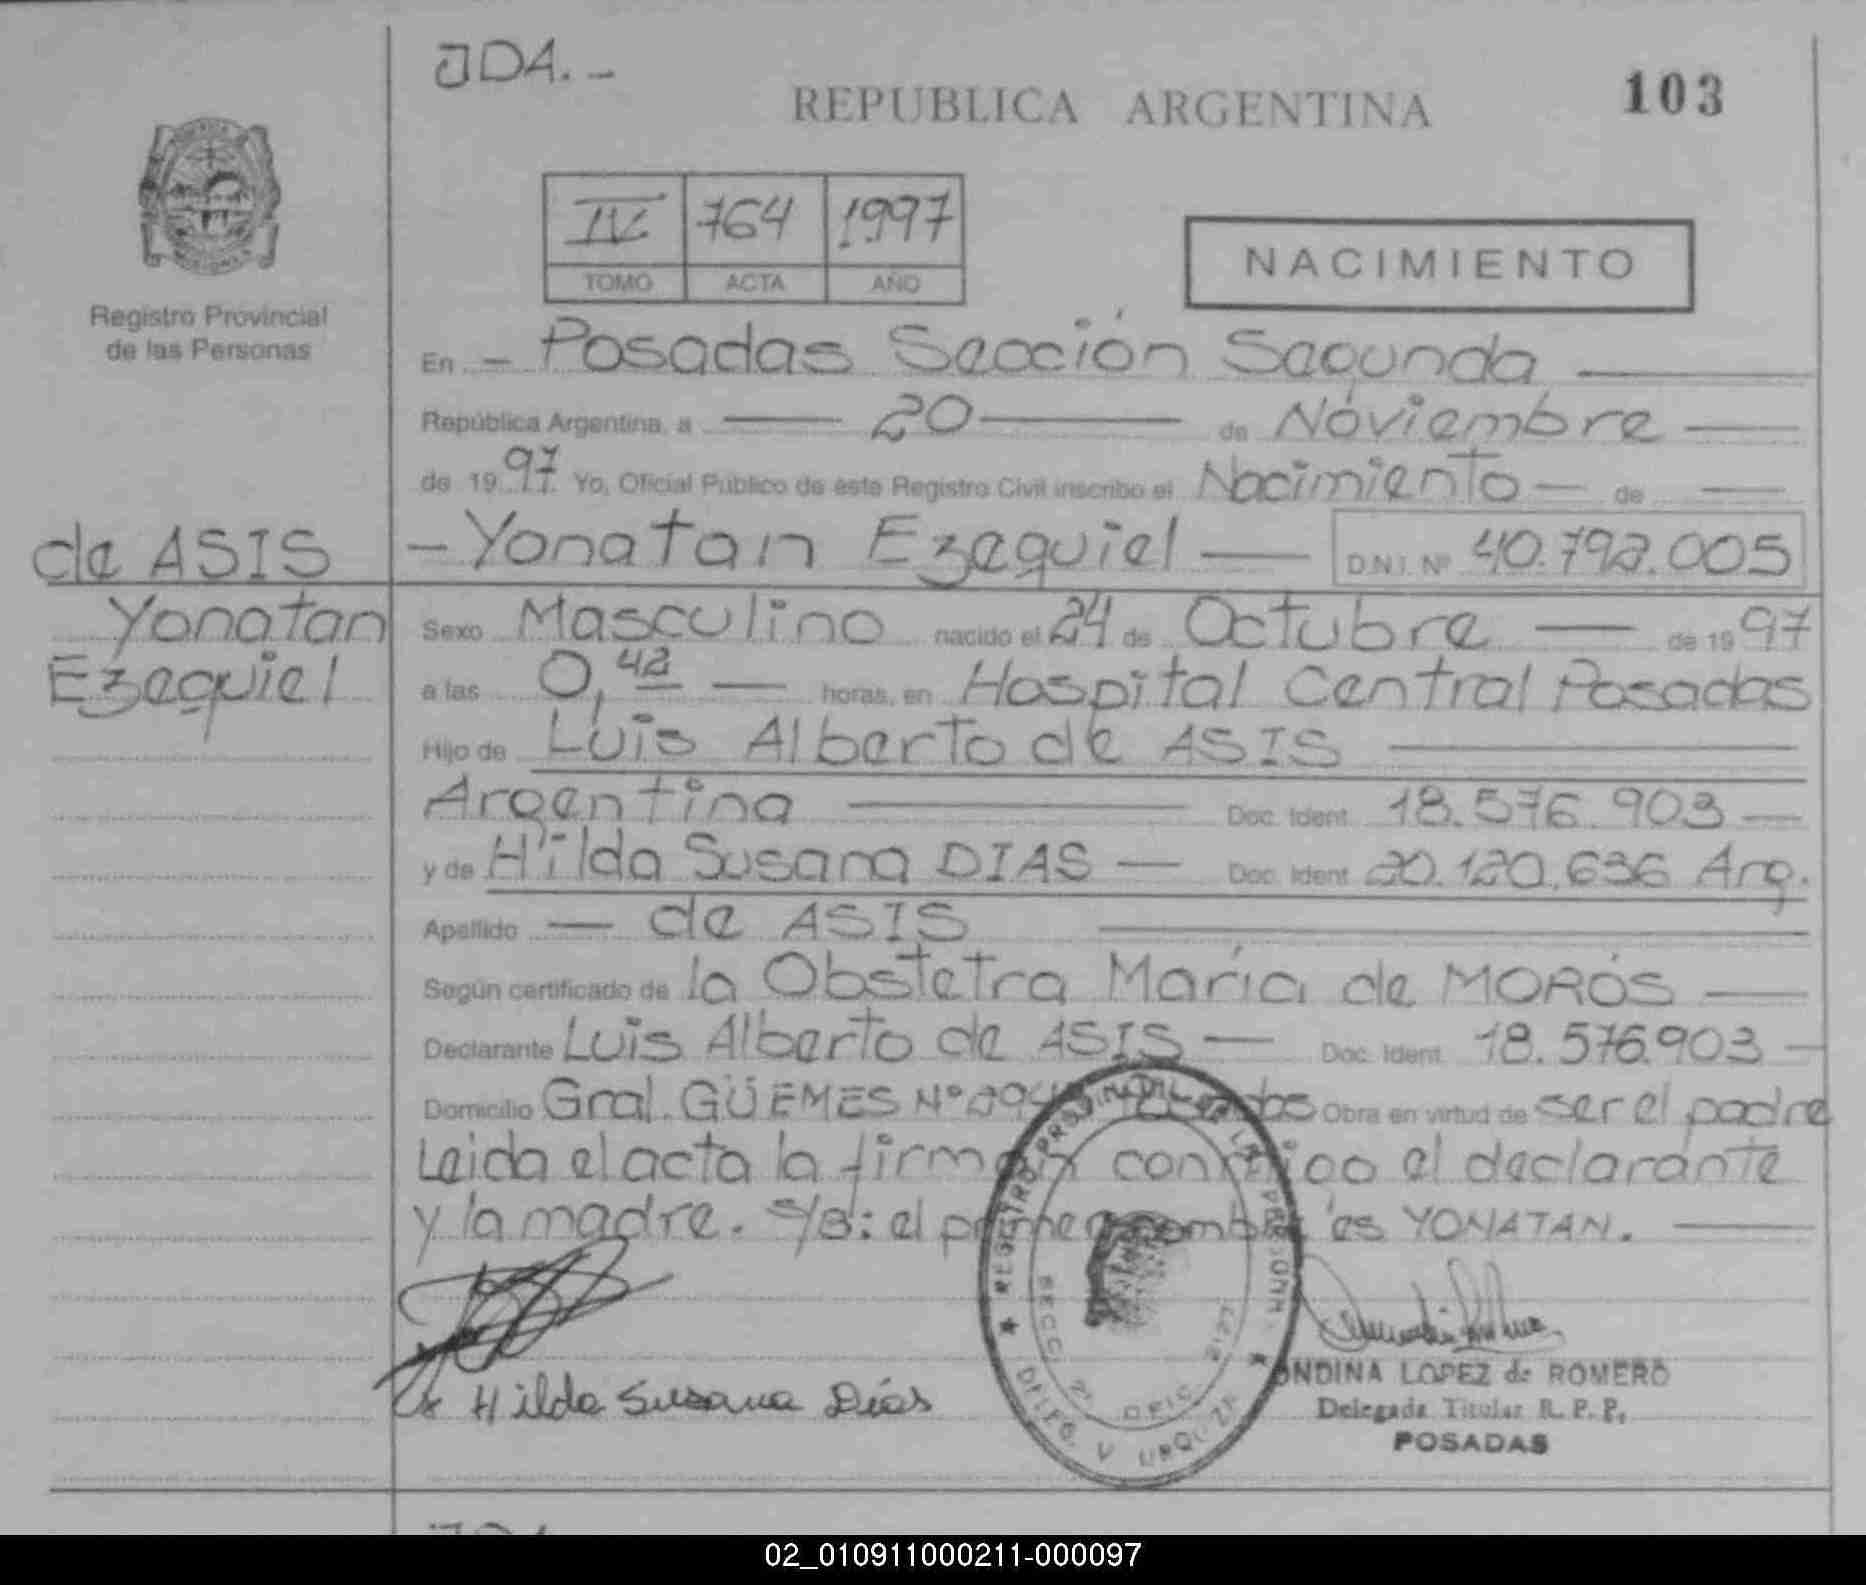 JDA.-
REPUBLICA ARGENTINA
103
IV 764 1997
TOMO ACTA AÑO
NACIMIENTO
Registro Provincial
de las Personas
En - Posadas Sección Segunda
República Argentina, a 20 de Noviembre
de 1997 Yo, Oficial Público de este Registro Civil inscribo el Nacimiento - de
de ASIS
Yonatan
Ezequiel
- Yonatan Ezequiel D.N.I. Nº 40.792.005
Sexo Masculino nacido el 24 de Octubre de 1997
a las 0,42 horas, en Hospital Central Posadas
Hijo de Luis Alberto de ASIS
Argentina Doc. Ident. 18.576.903
y de Hilda Susana DIAS Doc. Ident. 20.120.636 Arg.
Apellido de ASIS
Según certificado de la Obstetra María de MORÓS
Declarante Luis Alberto de ASIS Doc. Ident. 18.576.903
Domicilio Gral. GÜEMES Nº Posadas Obra en virtud de ser el padre
Leida el acta la firman conmigo el declarante
y la madre. S/B: el primer nombre es YONATAN.
Hilda Susana Días
REGISTRO PROVINCIAL DE LAS PERSONAS
SECC. 2ª OFIC.
DELEG. V. URQUIZA
ONDINA LOPEZ de ROMERO
Delegada Titular R. P. P.
POSADAS
02_010911000211-000097